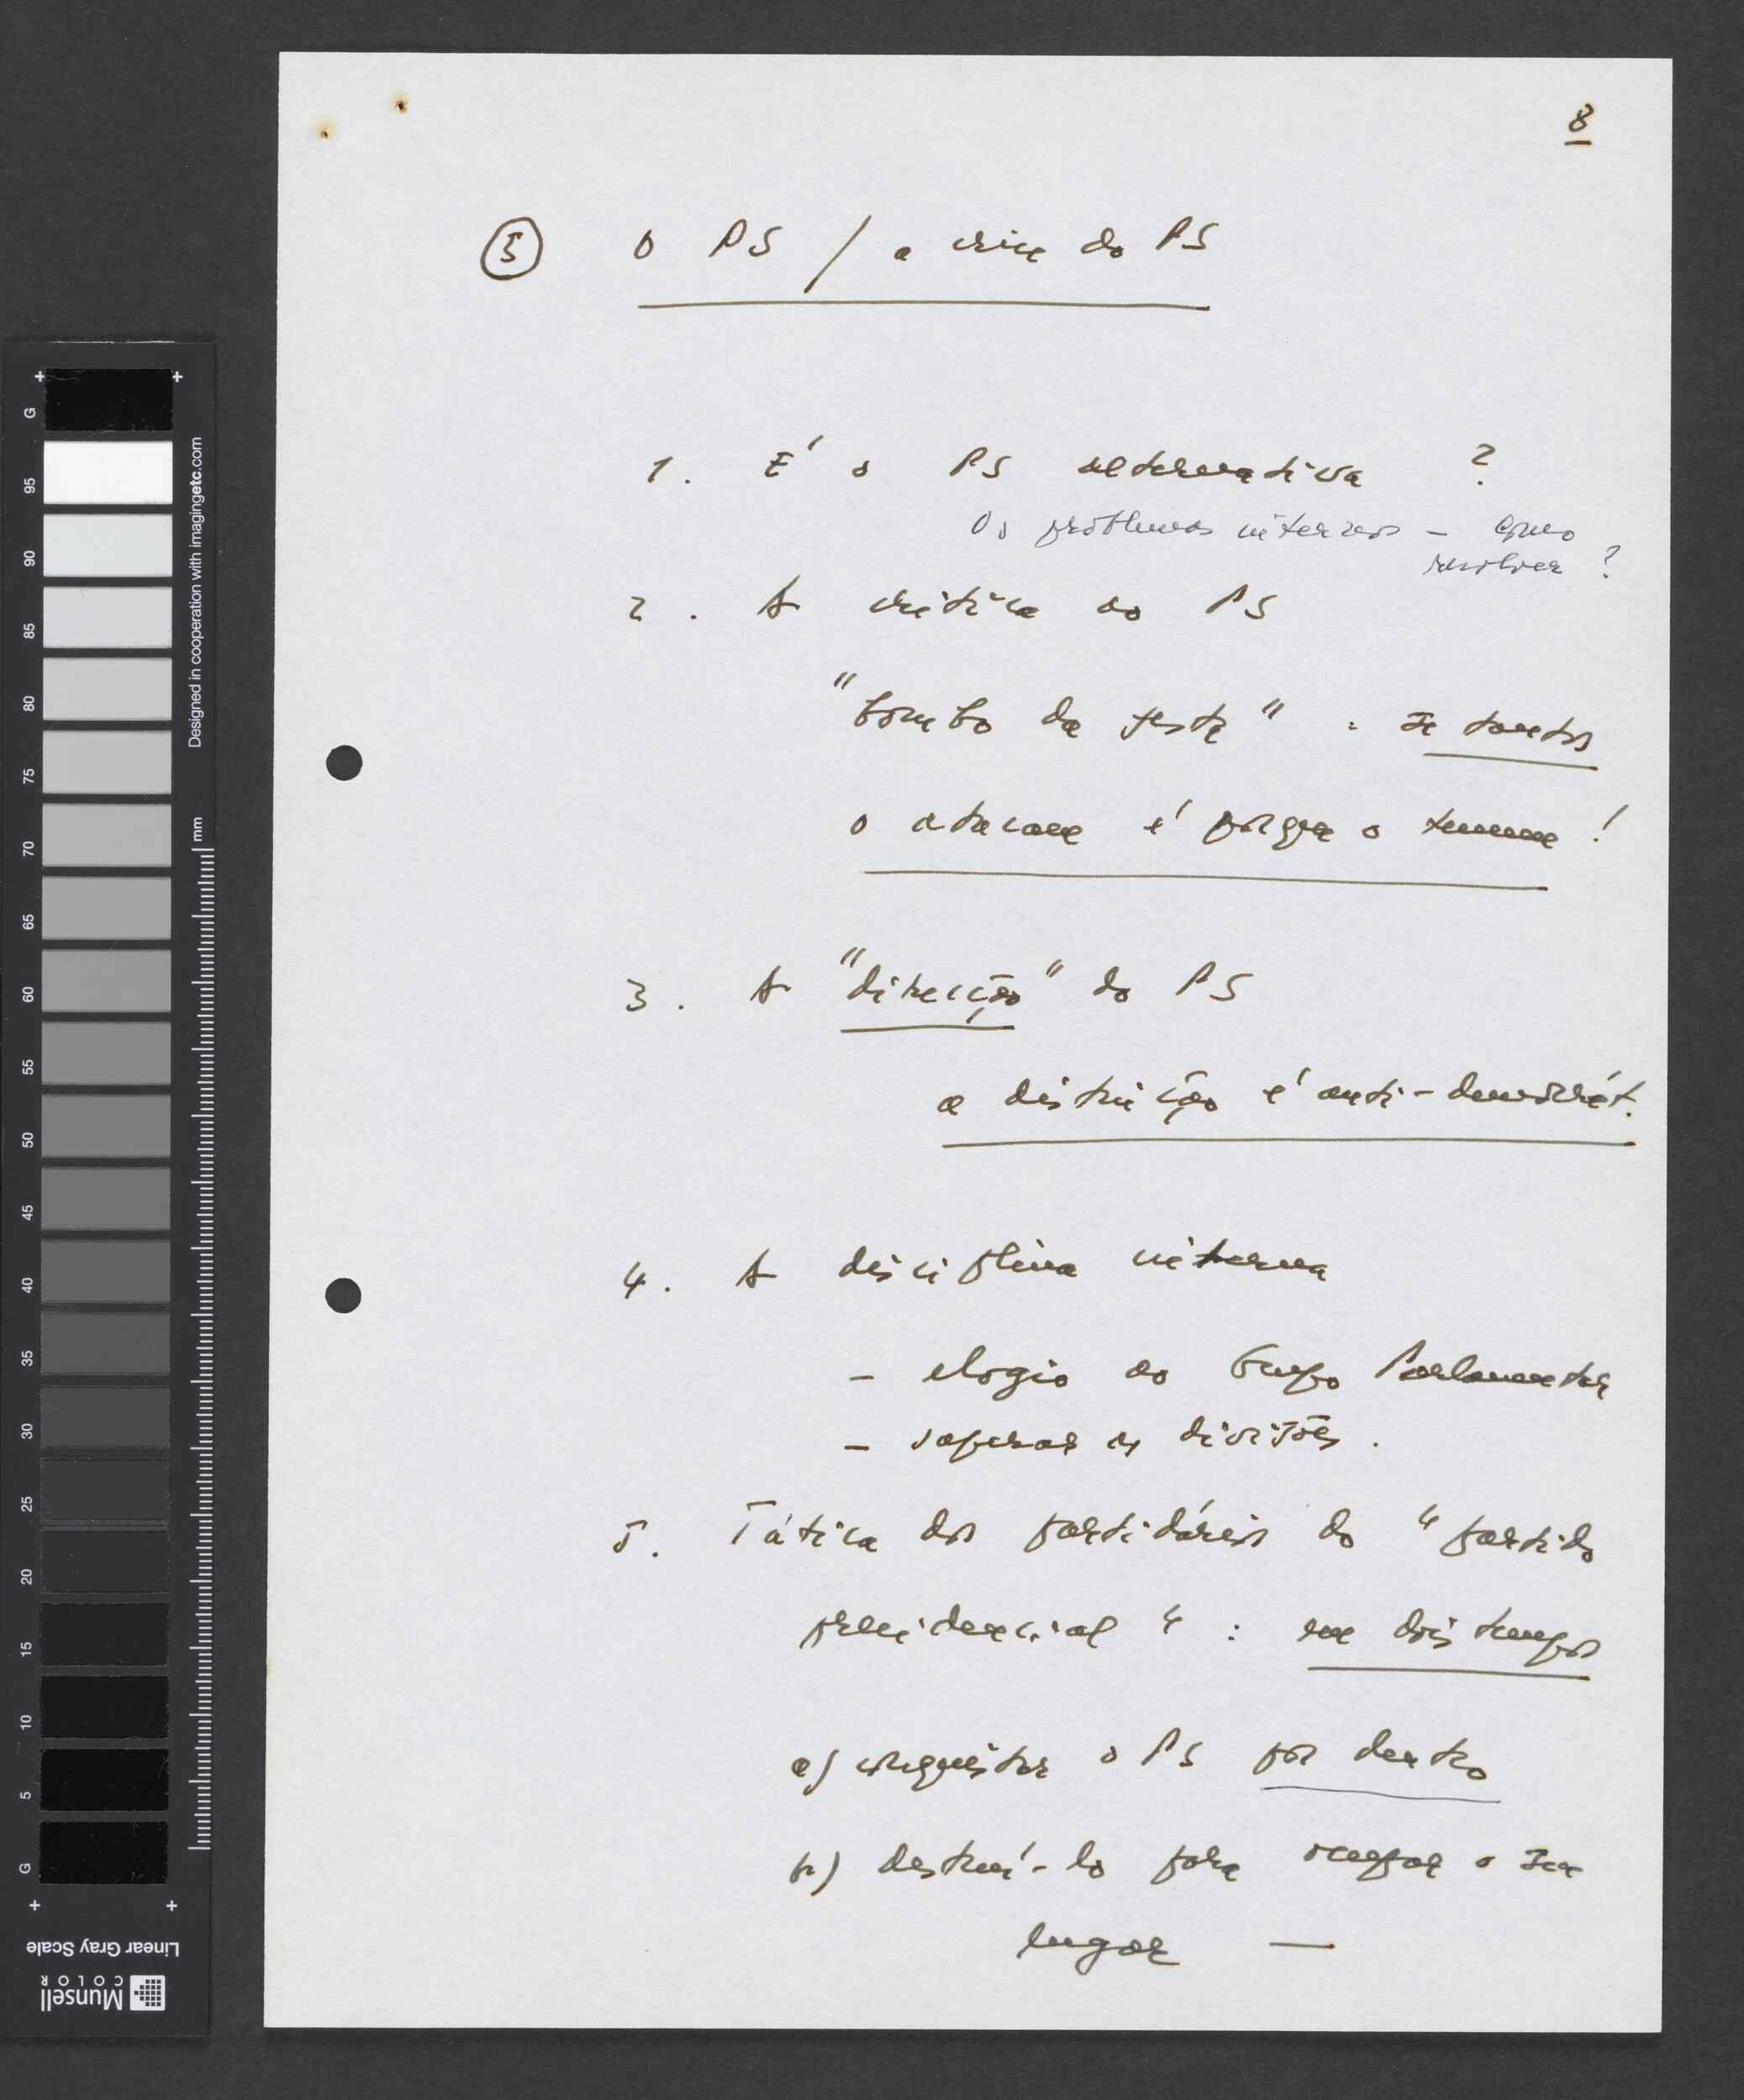 8
5 O PS / a crise do PS
1. É o PS alternativa ?
Os problemas internos - como
resolver ?
2. A crítica ao PS
"bombo da festa" : se tantos
o atacam é porque o temem !
3. A "direcção" do PS
a distinção é anti-democrát.
4. A disciplina interna
- elogio ao Grupo Parlamentar
- superar as divisões.
5. Tática dos partidários do "partido
presidencial" : em dois tempos
a) conquistar o PS por dentro
b) destruí-lo para ocupar o seu
lugar —
G
95
90
85
80
75
70
65
60
55
50
45
40
35
30
25
20
15
10
5
G
Designed in cooperation with imagingetc.com
mm
Linear Gray Scale
Munsell
COLOR